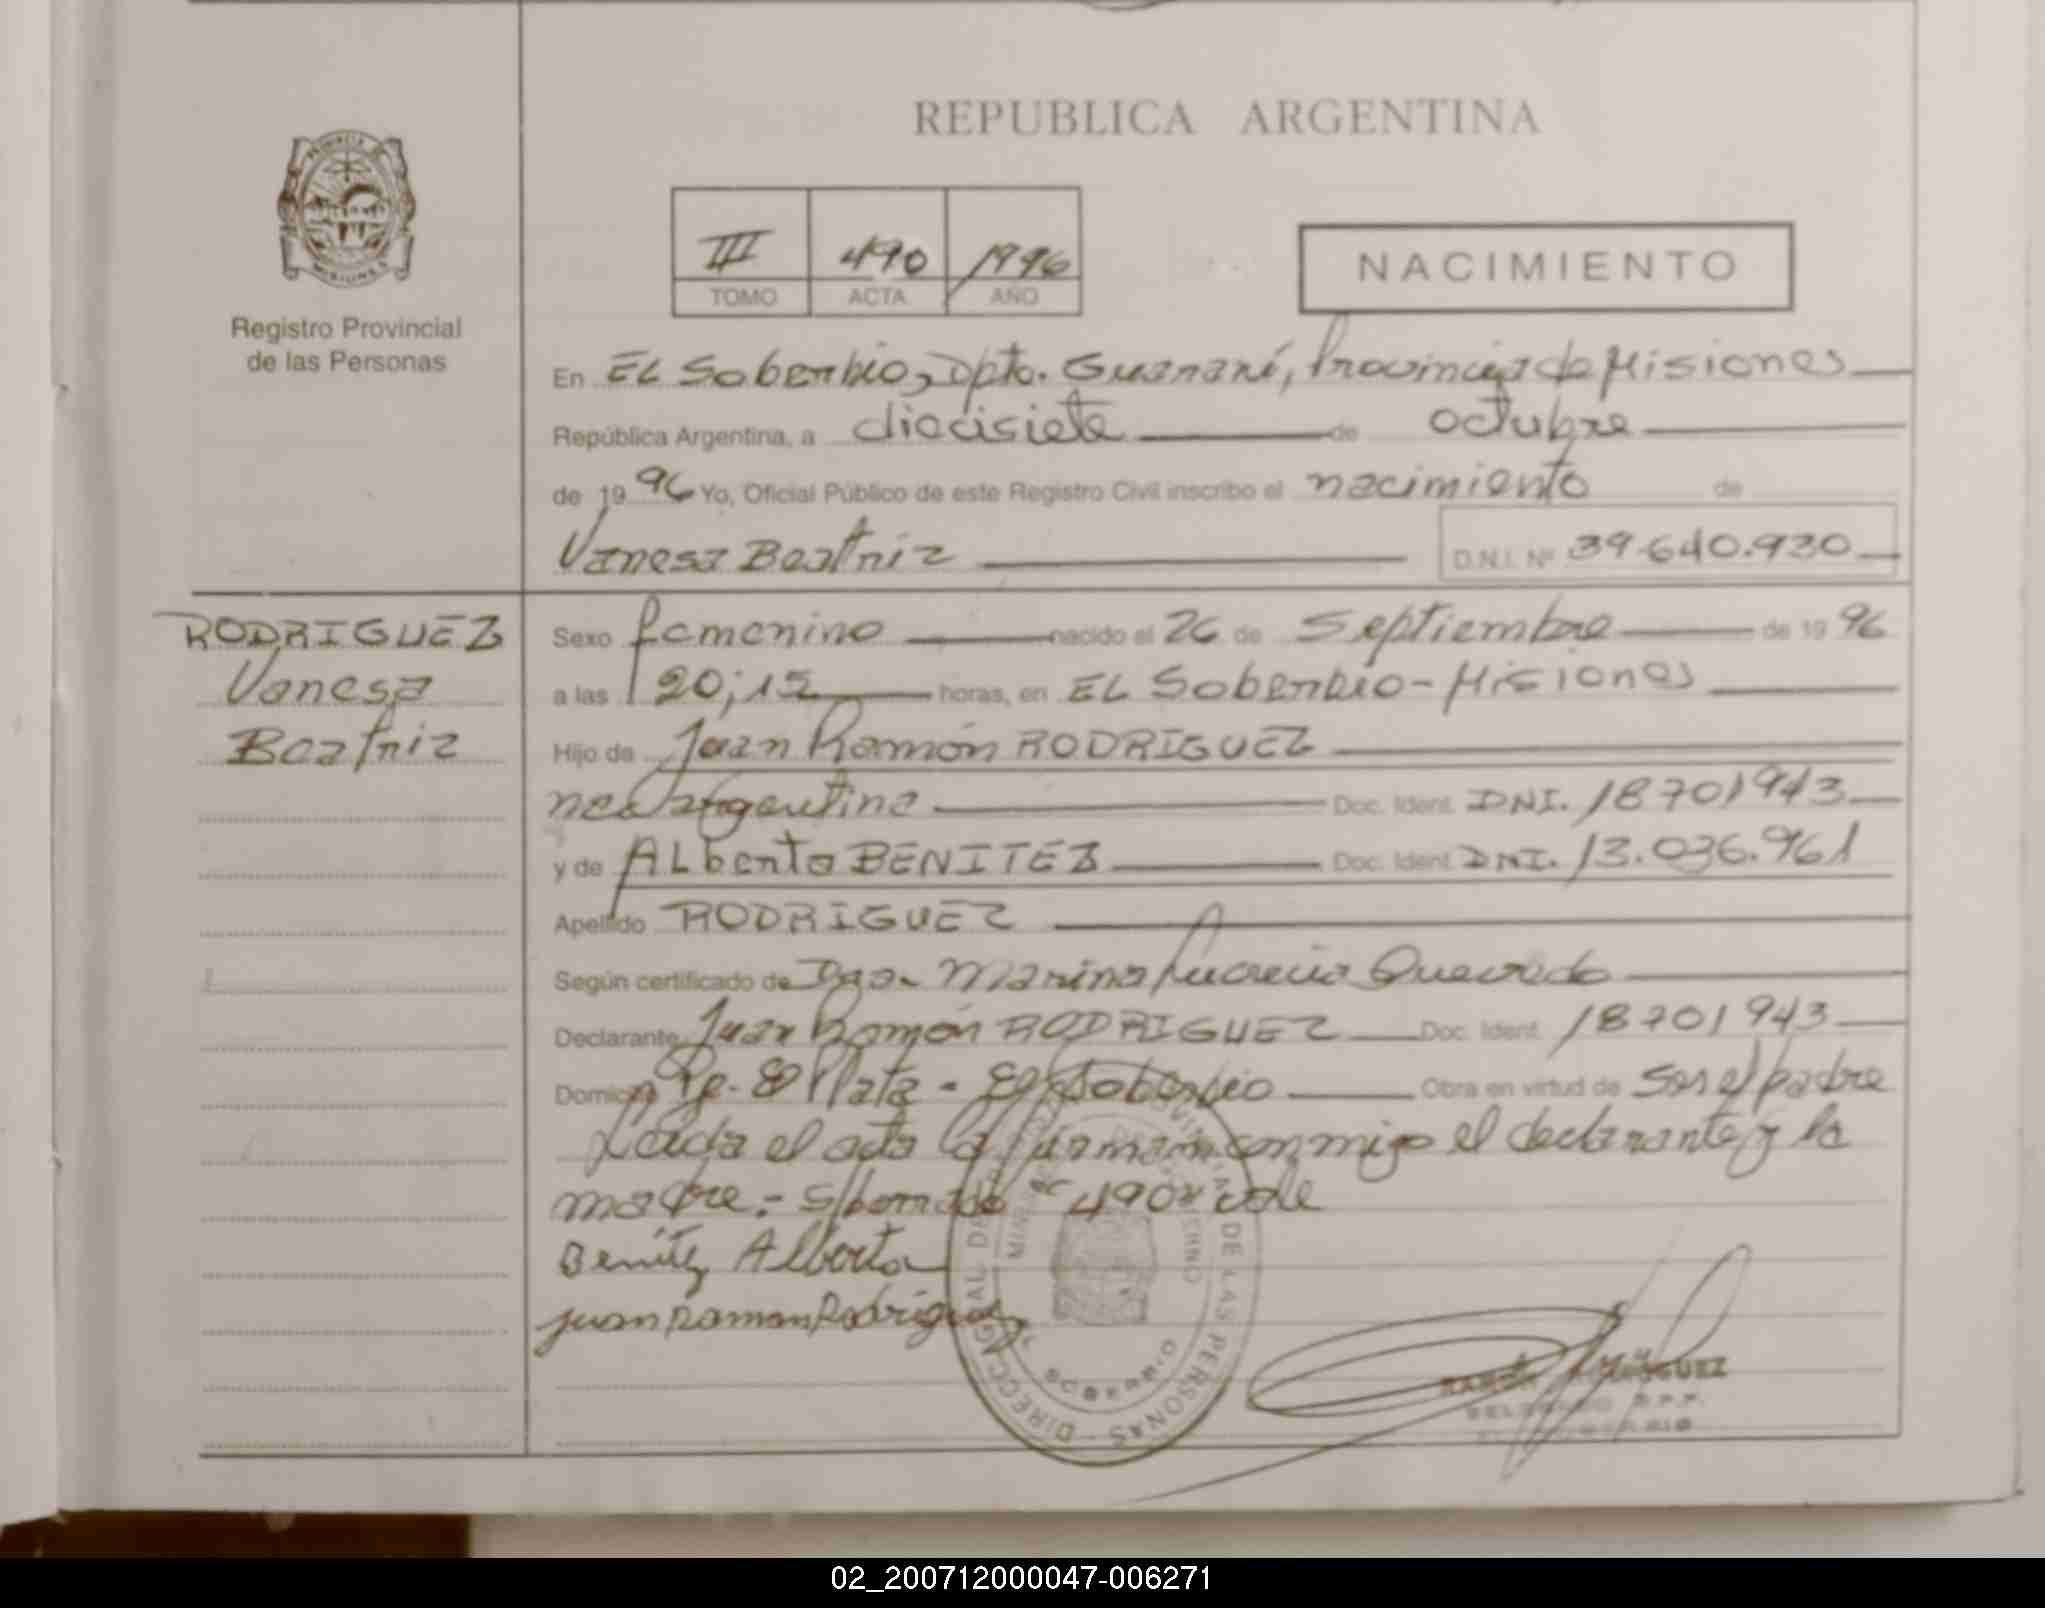 REPUBLICA ARGENTINA
PROVINCIA DE
MISIONES
Registro Provincial
de las Personas
III 490 1996
TOMO ACTA AÑO
NACIMIENTO
En EL Soberbio, Dpto. Guaraní, Provincia de Misiones
República Argentina, a diecisiete de octubre
de 1996 Yo, Oficial Público de este Registro Civil inscribo el nacimiento de
Vanesa Beatriz D.N.I. Nº 39.640.930
RODRIGUEZ
Vanesa
Beatriz
Sexo femenino nacido el 26 de Septiembre de 1996
a las 20;15 horas, en EL Soberbio - Misiones
Hijo de Juan Ramón RODRIGUEZ
argentino Doc. Ident. DNI. 18701943
y de ALberta BENITEZ Doc. Ident. DNI. 13.036.961
Apellido RODRIGUEZ
Según certificado de Dra. Marina Lucrecia Quevedo
Declarante Juan Ramón RODRIGUEZ Doc. Ident. 18701943
Domicilio Pje. El Plata - El Soberbio Obra en virtud de Ser el padre
Leída el acta la firman conmigo el declarante y la
madre.- S/borrado "490" vale
Benitez Alberta
juan Ramon Rodriguez
DE LAS PERSONAS - DIRECC
GOBIERNO
SOBERBIO
02_200712000047-006271